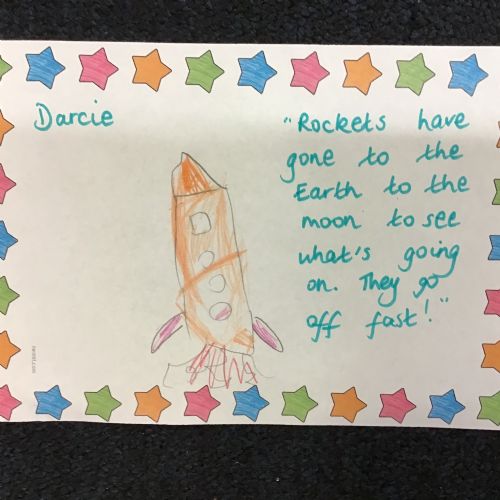 Darcie
"Rockets have
gone to the
Earth to the
moon to see
what's going
on. They go
off fast!"